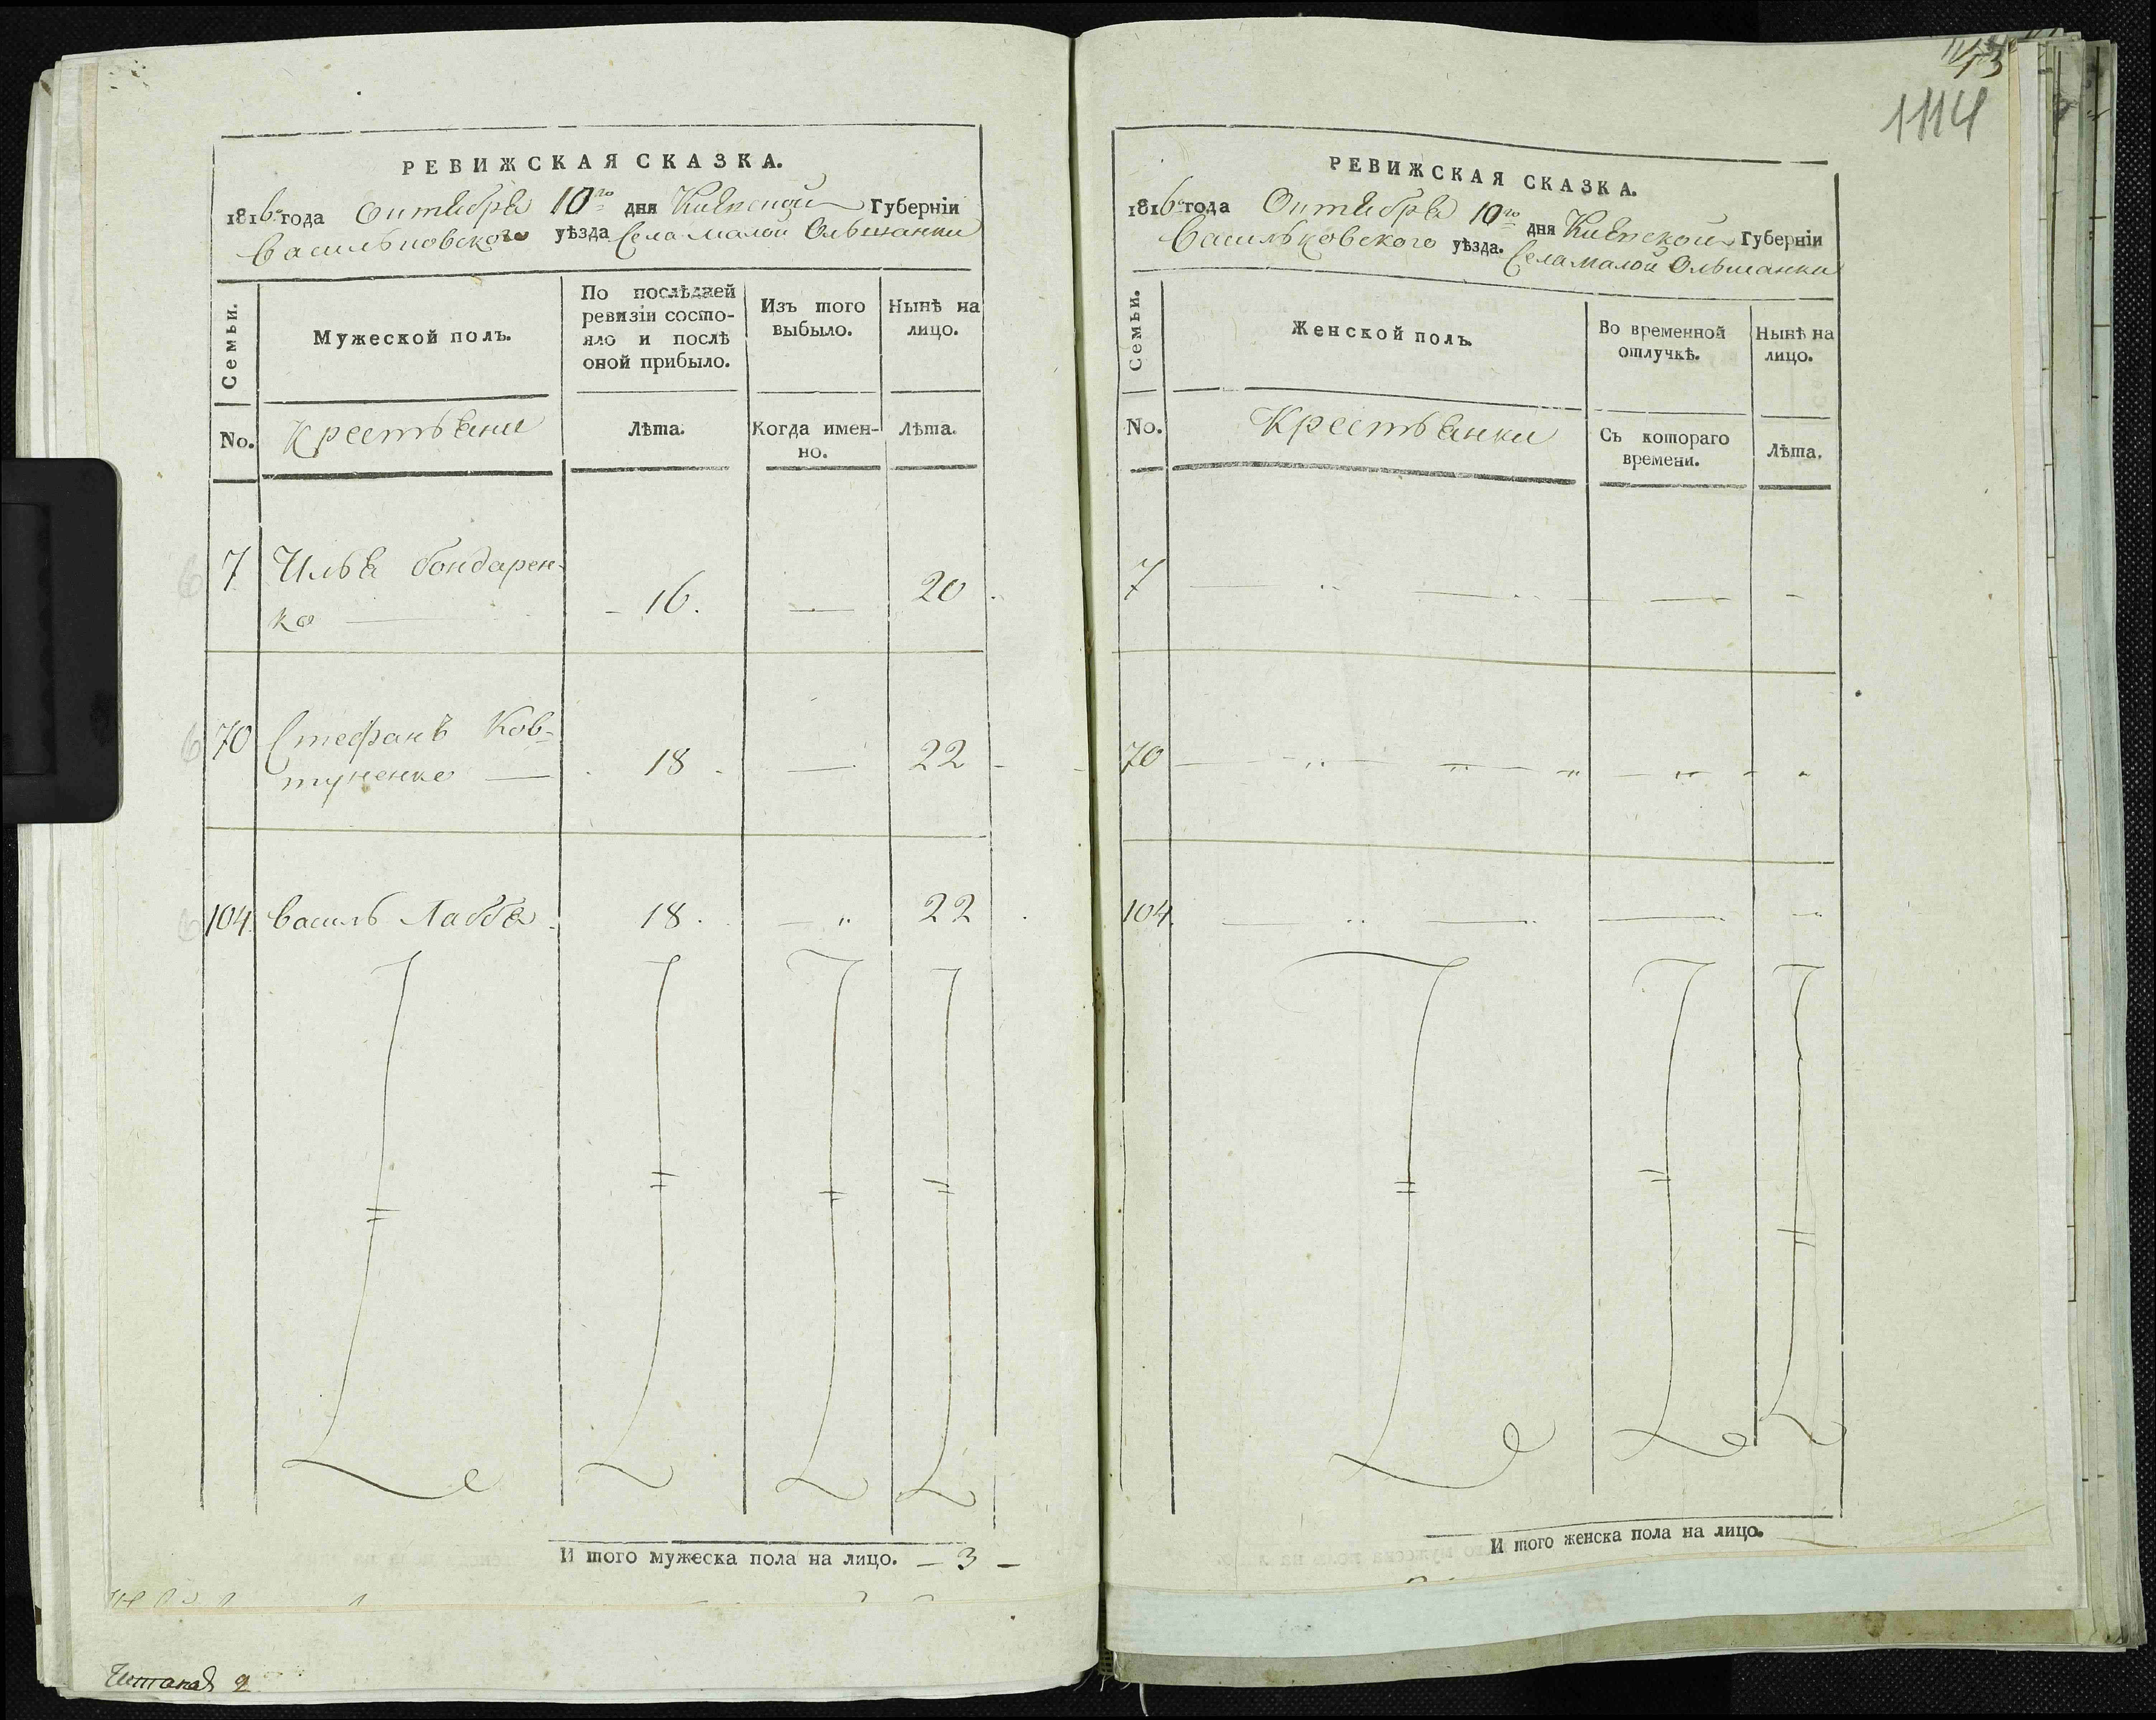 РЕВИЖСКАЯ СКАЗКА.
1816го года Октября 10го дня Киевской Губерніи
Васильковского уѣзда Села Малой Ольшанки
Семьи.
Мужеской полъ.
По послѣдней ревизіи состояло и послѣ оной прибыло.
Изъ того выбыло.
Нынѣ на лицо.
No.
Крестьяне
Лѣта.
Когда именно.
Лѣта.
7 Илья бондарен-
ко — 16. — 20
70 Стефанъ Ков-
туненко — 18 — 22
104 василь Лабба 18. — 22
И того мужеска пола на лицо. — 3 —
Читалъ
РЕВИЖСКАЯ СКАЗКА.
1816го года Октября 10го дня Киевской Губерніи
Васильковского уѣзда. Села Малой Ольшанки
Семьи.
Женской полъ.
Во временной отлучкѣ.
Нынѣ на лицо.
No.
Крестьянки
Съ котораго времени.
Лѣта.
7
70
104
И того женска пола на лицо.
1114